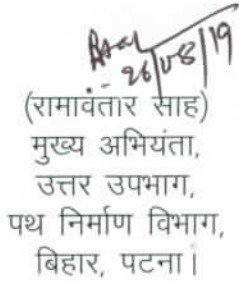 26/08/19
(रामावंतार साह)
मुख्य अभियंता,
उत्तर उपभाग,
पथ निर्माण विभाग,
बिहार, पटना।